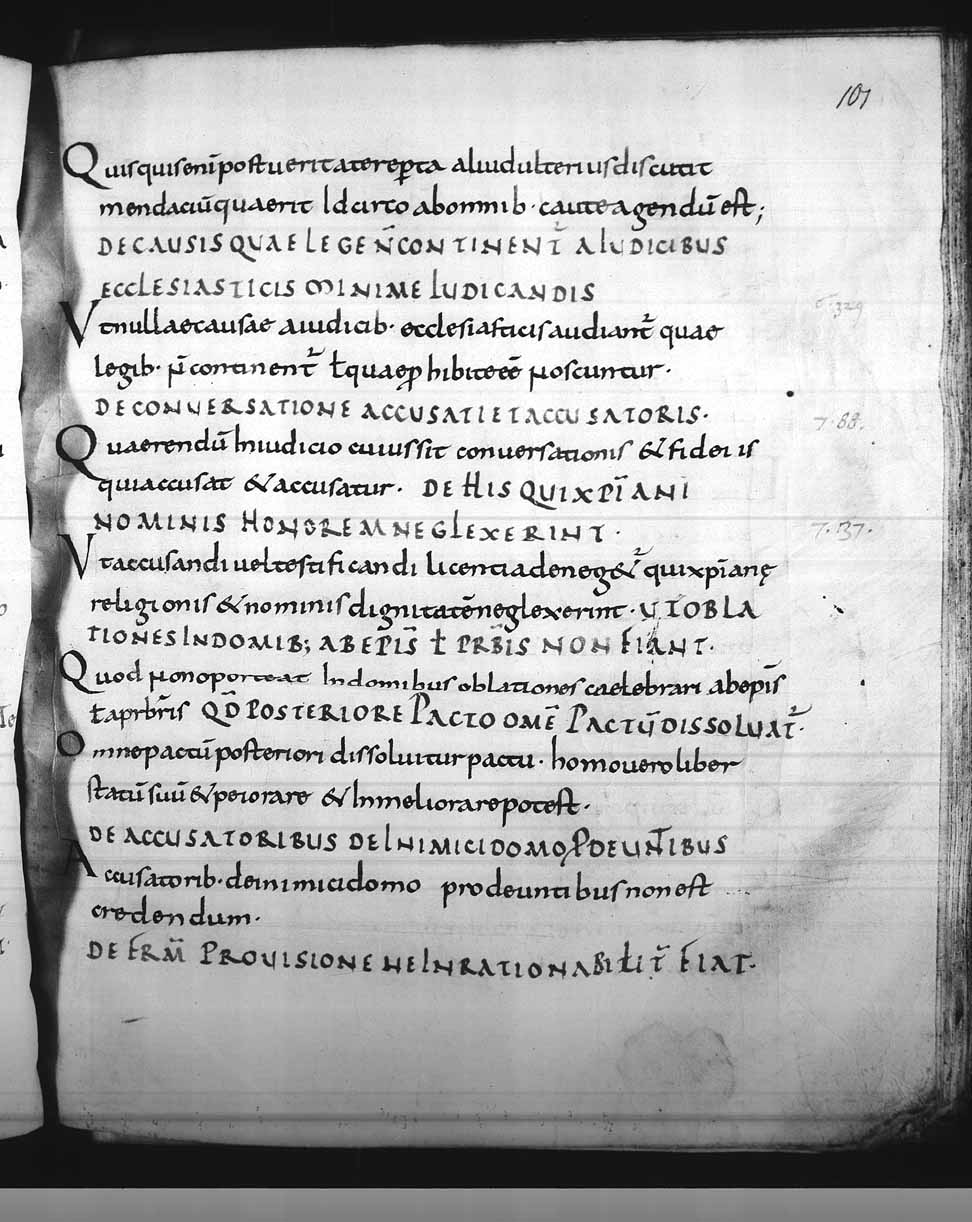 101
Quisquis enī post ueritatē reꝑta aliud ulterius discutit
mendaciū quaerit Idcirco abomnib· caute agendū est;
DE CAUSIS QUAE LEGE N̄ CONTINENT̄ A IUDICIBUS
ECCLESIASTICIS MINIME IUDICANDIS
6·329
Vt nullae causae a iudicib· ecclesiasticis audiant̄ quae
legib· n̄ continent̄ ł quae ꝓhibite eē noscuntur·
DE CONUERSATIONE ACCUSATI ET ACCUSATORIS·
7·88·
Quaerendū In iudicio cuius sit conuersationis & fidei is
qui accusat & accusatur· DE HIS QUI XPĪANI
NOMINIS HONOREM NEGLEXERINT·
7·137·
Vt accusandi uel testificandi licentia deneg&̄ qui xpīanę
religionis & nominis dignitatē neglexerint· UT OBLA
TIONES IN DOMIB; AB EP̄IS ł PRB̄IS NON FIANT·
Quod non oporteat In domibus oblationes caelebrari ab ep̄is
ł a prb̄ris QD̄ POSTERIORE PACTO OMĒ PACTŪ DISSOLUAT̄·
Omne pactū posteriori dissoluitur pactu· homo uero liber
statū suū & peiorare & In meliorare potest·
DE ACCUSATORIBUS DE INIMICI DOMO ꝒDEUNTIBUS
Accusatorib· de inimici domo prodeuntibus non est
credendum·
DE FRM̄ PROUISIONE NE INRATIONABIłIT̄ FIAT·